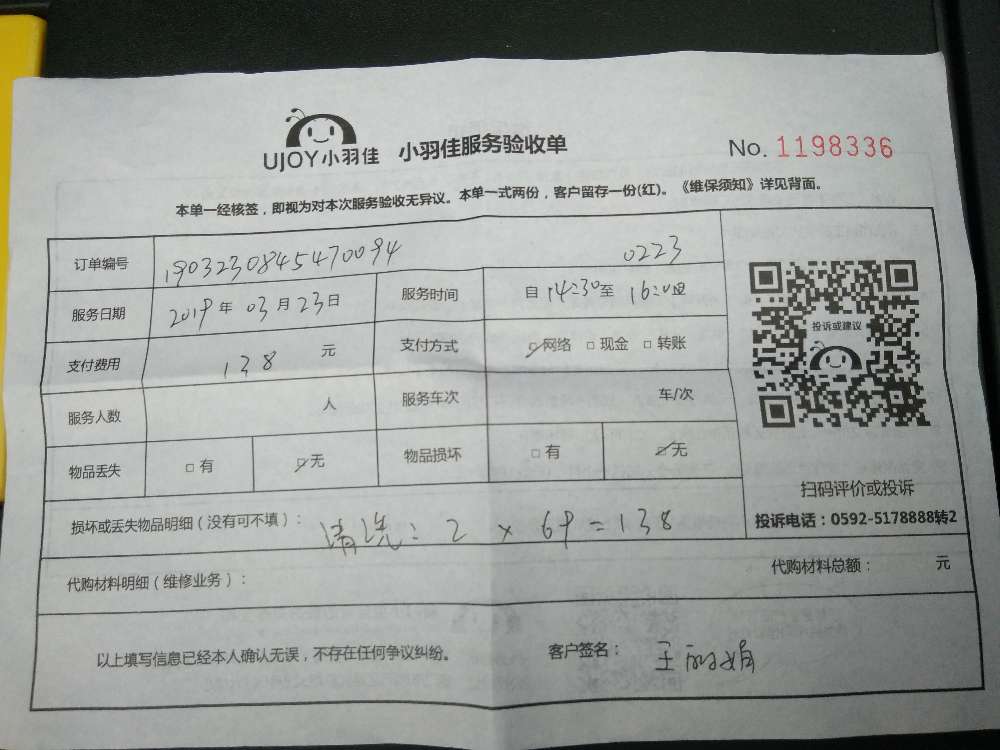 UJOY小羽佳 小羽佳服务验收单 No. 1198336
本单一经核签，即视为对本次服务验收无异议。本单一式两份，客户留存一份(红)。《维保须知》详见背面。
订单编号 1903230845470094 0223
服务日期 2019年 03月23日 服务时间 自 14:30至 16:00
支付费用 138 元 支付方式 ☑网络 □现金 □转账
服务人数 人 服务车次 车/次
物品丢失 □有 ☑无 物品损坏 □有 ☑无
投诉或建议
扫码评价或投诉
投诉电话：0592-5178888转2
损坏或丢失物品明细（没有可不填）： 清洗：2 × 69 = 138
代购材料明细（维修业务）： 代购材料总额： 元
以上填写信息已经本人确认无误，不存在任何争议纠纷。 客户签名： 王丽娟